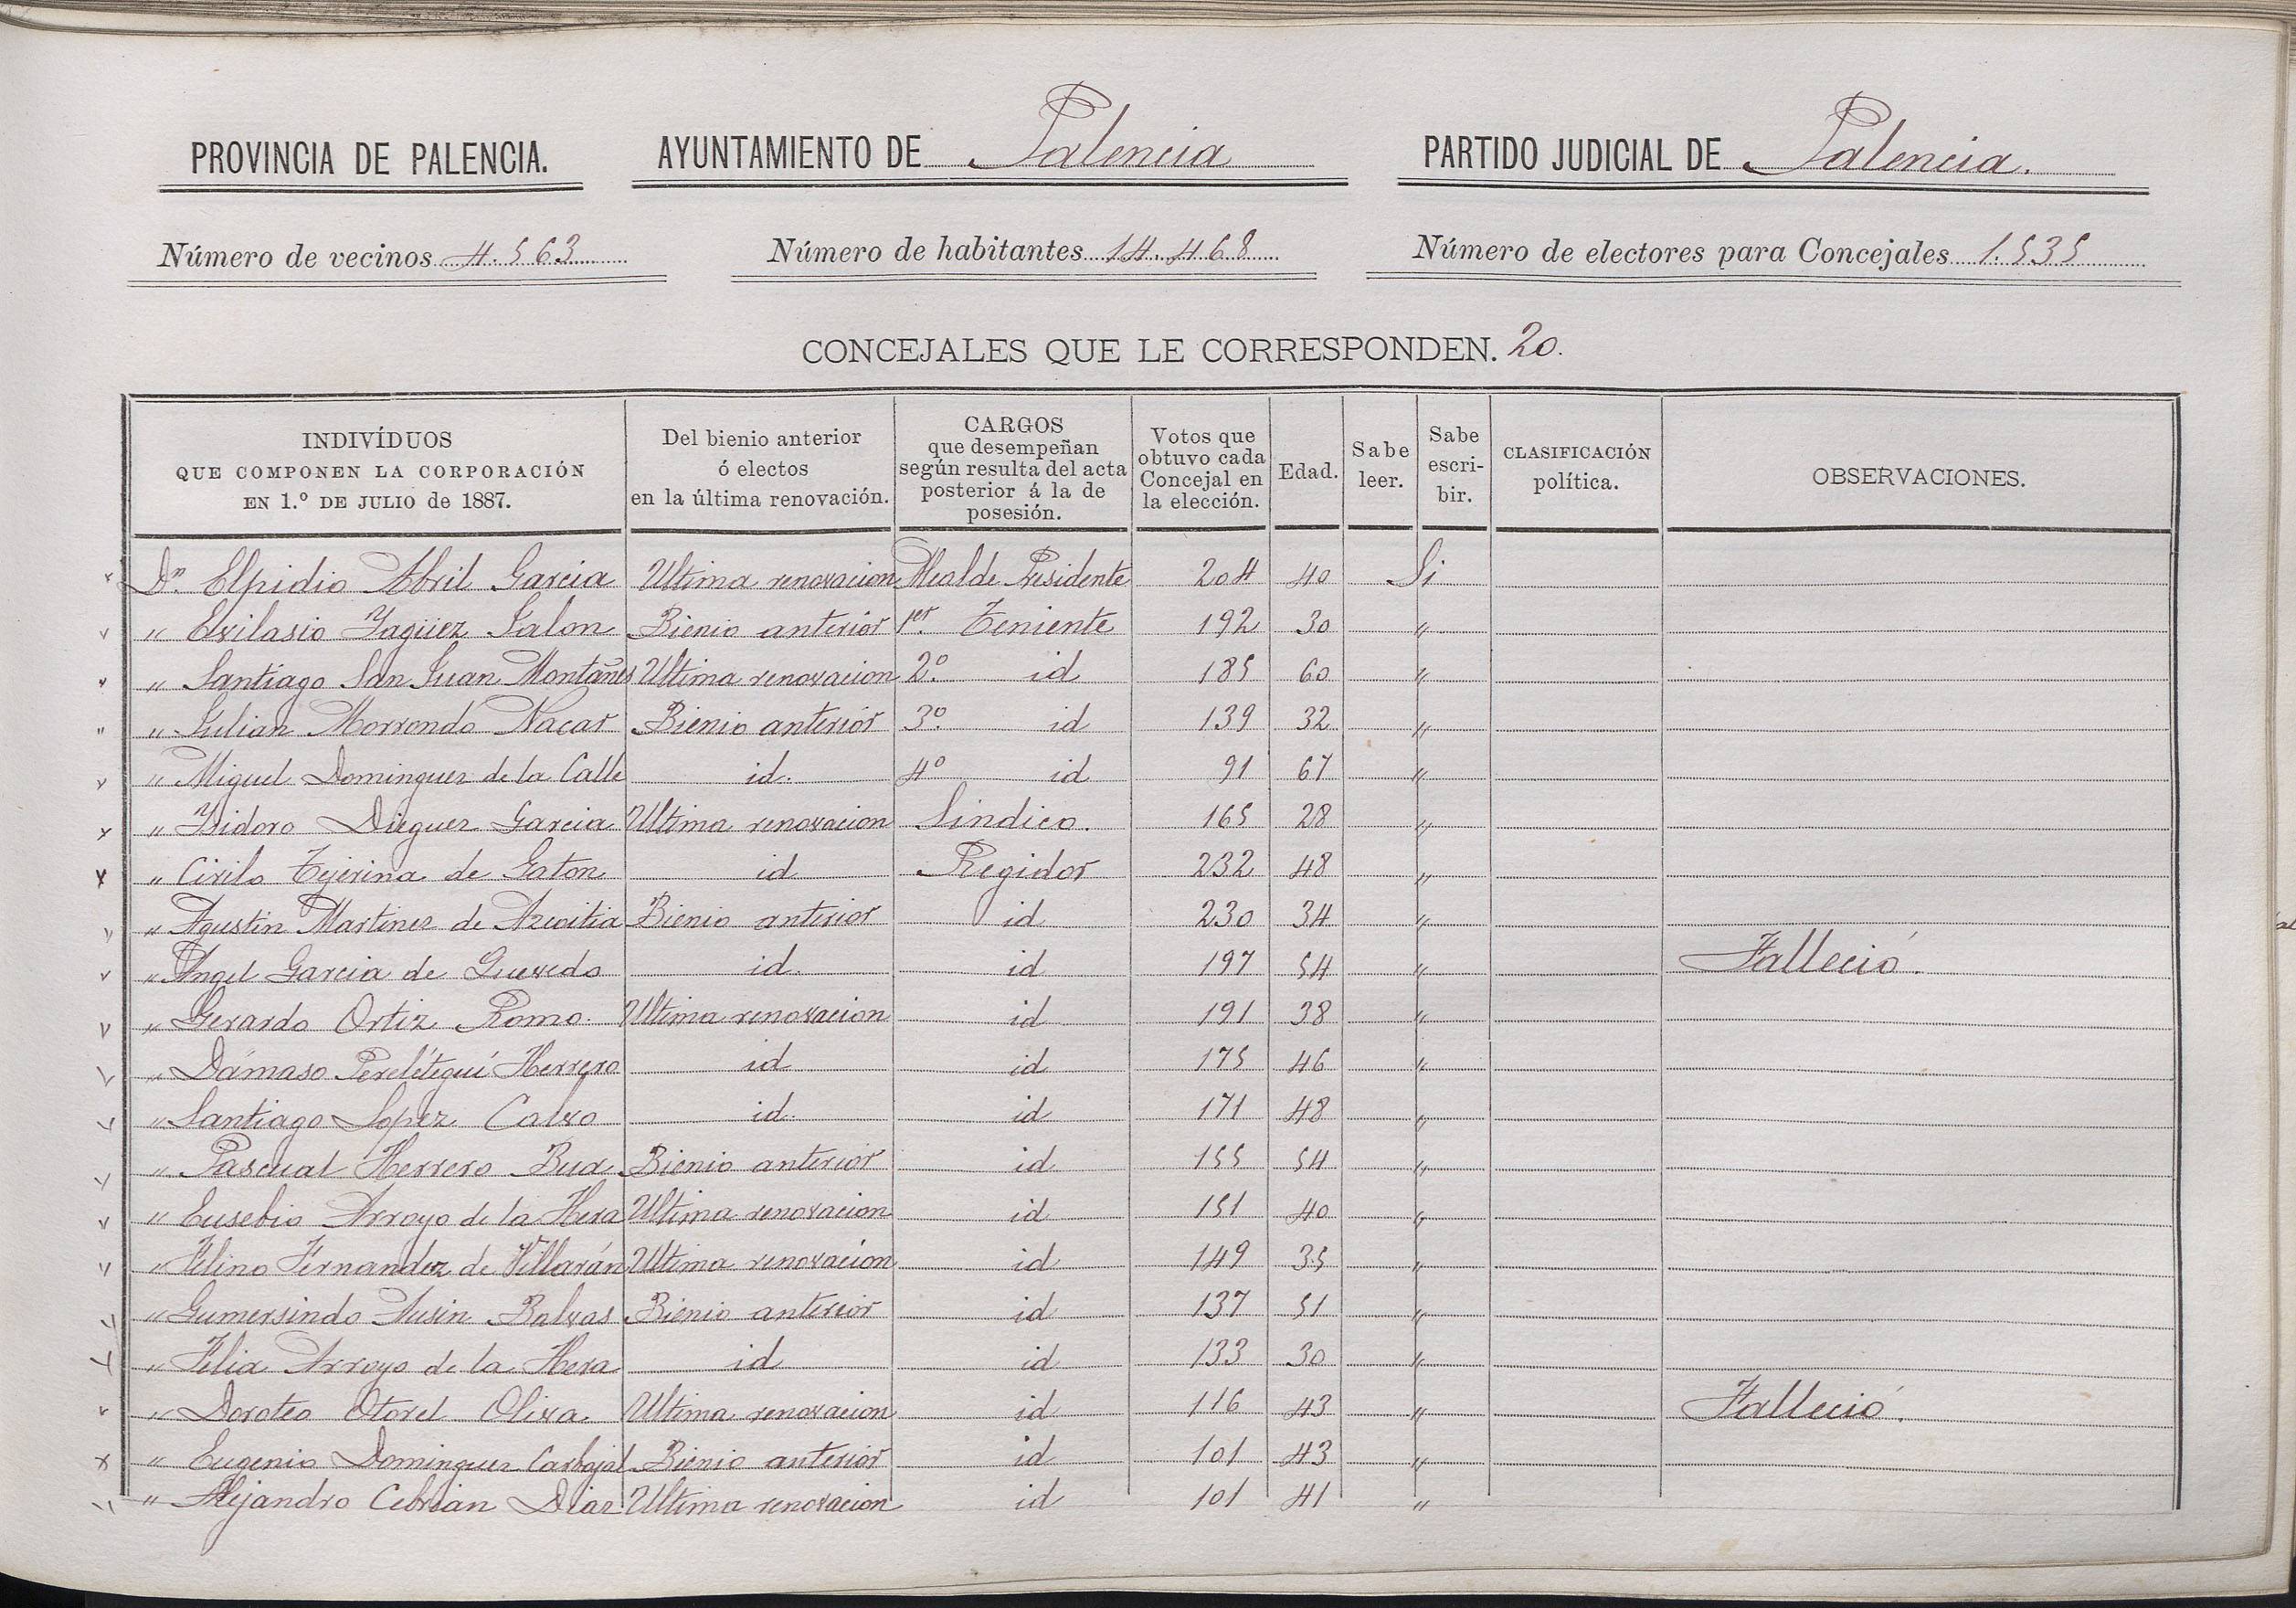 PROVINCIA DE PALENCIA. AYUNTAMIENTO DE Palencia PARTIDO JUDICIAL DE Palencia.
Número de vecinos 4.563 Número de habitantes 14.468 Número de electores para Concejales 1.535
CONCEJALES QUE LE CORRESPONDEN. 20.
INDIVÍDUOS QUE COMPONEN LA CORPORACIÓN EN 1.º DE JULIO de 1887. Del bienio anterior ó electos en la última renovación. CARGOS que desempeñan según resulta del acta posterior á la de posesión. Votos que obtuvo cada Concejal en la elección. Edad. Sabe leer. Sabe escribir. CLASIFICACIÓN política. OBSERVACIONES.
Dn. Elpidio Abril Garcia Ultima renovacion Alcalde Presidente 204 40 Si
" Evilasio Yagüez Salon Bienio anterior 1er. Teniente 192 30 "
" Santiago San Juan Montañes Ultima renovacion 2º. id 185 60 "
" Julian Morrondo Nacar Bienio anterior 3º. id 139 32 "
" Miguel Dominguez de la Calle id. 4º id 91 67 "
" Ysidoro Dieguez Garcia Ultima renovacion Sindico. 165 28 "
" Cirilo Tejerina de Gaton id Regidor 232 48 "
" Agustin Martinez de Azcoitia Bienio anterior id 230 34 "
" Angel Garcia de Quevedo id. id 197 54 " Falleció.
" Gerardo Ortiz Romo. Ultima renovacion id 191 38 "
" Dámaso Perelétegui Herrero id id 175 46 "
" Santiago Lopez Calvo id. id 171 48 "
" Pascual Herrero Bux Bienio anterior id 155 54 "
" Eusebio Arroyo de la Hera Ultima renovacion id 151 40 "
" Felino Fernandez de Villarán Ultima renovacion id 149 35 "
" Gumersindo Ausin Balvas Bienio anterior id 137 51 "
" Felix Arroyo de la Hera id id 133 30 "
" Doroteo Otorel Oliva Ultima renovacion id 116 43 " Falleció.
" Eugenio Dominguez Carbajal Bienio anterior id 101 43 "
" Alejandro Cebrian Diaz Ultima renovacion id 101 41 "